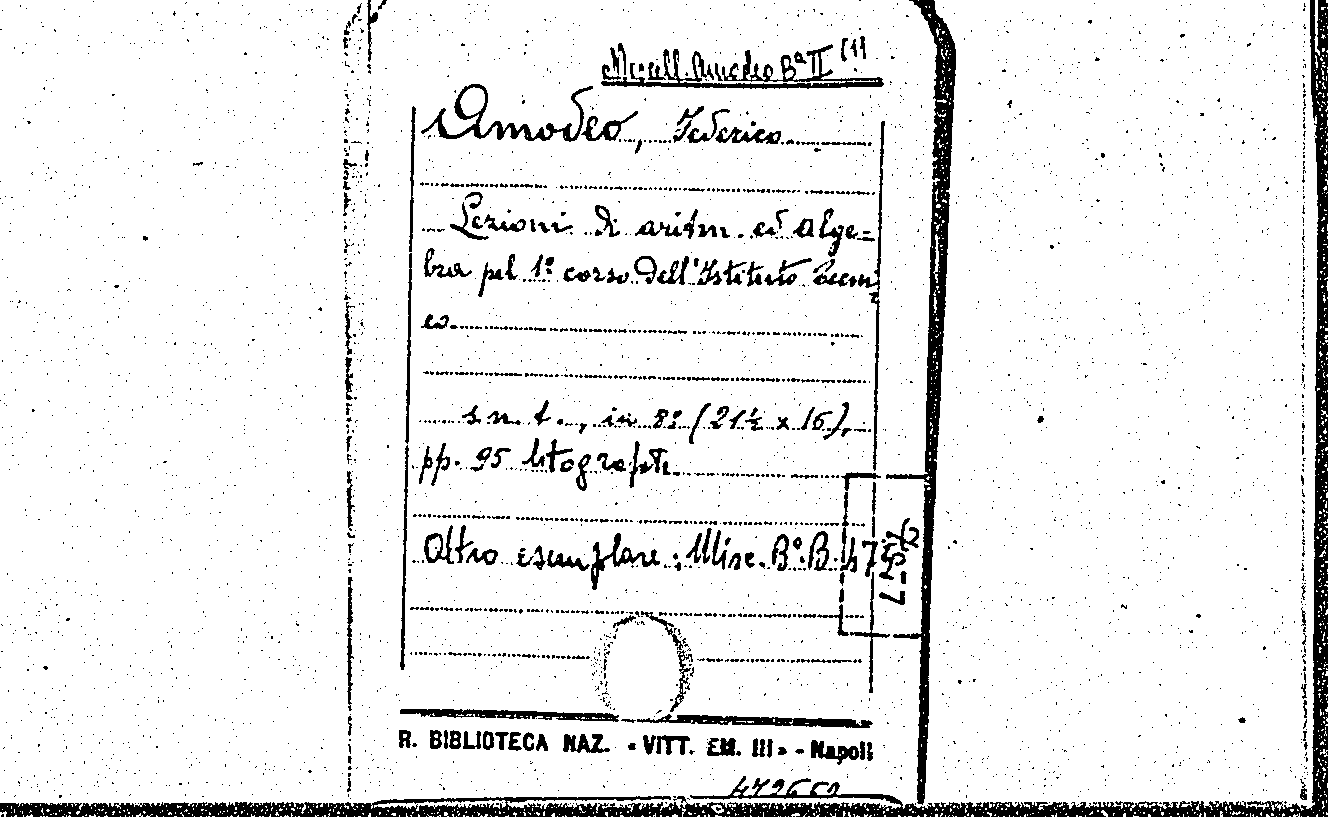 Miscell. Amodeo Bª II (1)
Amodeo, Federico.
Lezioni di aritm. ed alge=
bra pel 1º corso dell'Istituto Tecni=
co.
s. n. t., in 8º (21½ x 16),
pp. 95 litografate.
Altro esemplare: Misc. Bª. B. 47
R. BIBLIOTECA NAZ. «VITT. EM. III» - Napoli